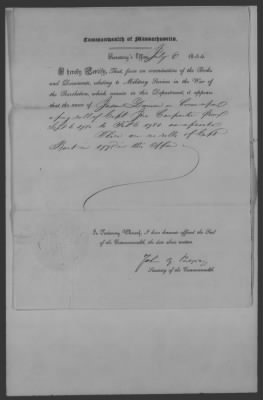 Commonwealth of Massachusetts.
Secretary's Office, July 6 18
I hereby Certify, That, from an examination of the Books
and Documents, relating to Military Service in the War of
the Revolution, which remain in this Department, it appears
that the name of is on
a pay roll of Capt Carpenter from
Sept 6 1780 to 1780 as private
There are no rolls of Capt
in 1775 in this Office
In Testimony Whereof, I have hereunto affixed the Seal
of the Commonwealth, the date above written.
John G
Secretary of the Commonwealth.